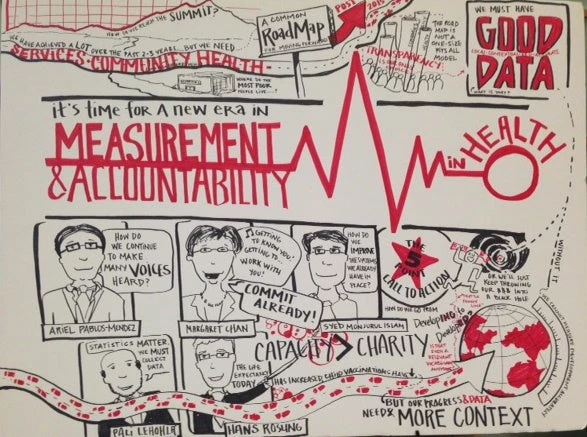 THE SUMMIT?
WE HAVE ACHIEVED A LOT OVER THE PAST 2-5 YEARS, BUT WE NEED
SERVICES·COMMUNITY HEALTH·
WHERE DO THE
MOST POOR
PEOPLE LIVE...?
A COMMON
ROADMAP
FOR MOVING FORWARD
POST
2015
TRANSPARENCY
THE ROAD
MAP IS
NOT A
ONE-SIZE
FITS ALL
MODEL
WE MUST HAVE
GOOD
DATA
it's time for a new era in
MEASUREMENT
&ACCOUNTABILITY
in HEALTH
HOW DO
WE CONTINUE
TO MAKE
MANY VOICES
HEARD?
ARIEL PABLOS-MENDEZ
GETTING
TO KNOW YOU!
GETTING TO
WORK WITH
YOU!
COMMIT
ALREADY!
MARGARET CHAN
HOW DO
WE IMPROVE
THE SYSTEMS
WE ALREADY
HAVE IN
PLACE?
SYED MONJURUL ISLAM
THE
5
POINT
CALL TO ACTION
OR WE'LL JUST
KEEP THROWING
OUR $$$ INTO
A BLACK HOLE
WITHOUT IT
HOW DO WE GO FROM
DevelopING to
DevelopED?
IS THAT
EVEN A
RELEVANT
ANYMORE?
CAPACITY > CHARITY
STATISTICS MATTER.
WE MUST
COLLECT
DATA
PALI LEHOHLA
THE LIFE
EXPECTANCY
TODAY
HAS INCREASED CHILD VACCINATIONS HAVE
HANS ROSLING
BUT OUR PROGRESS & DATA
NEEDS MORE CONTEXT